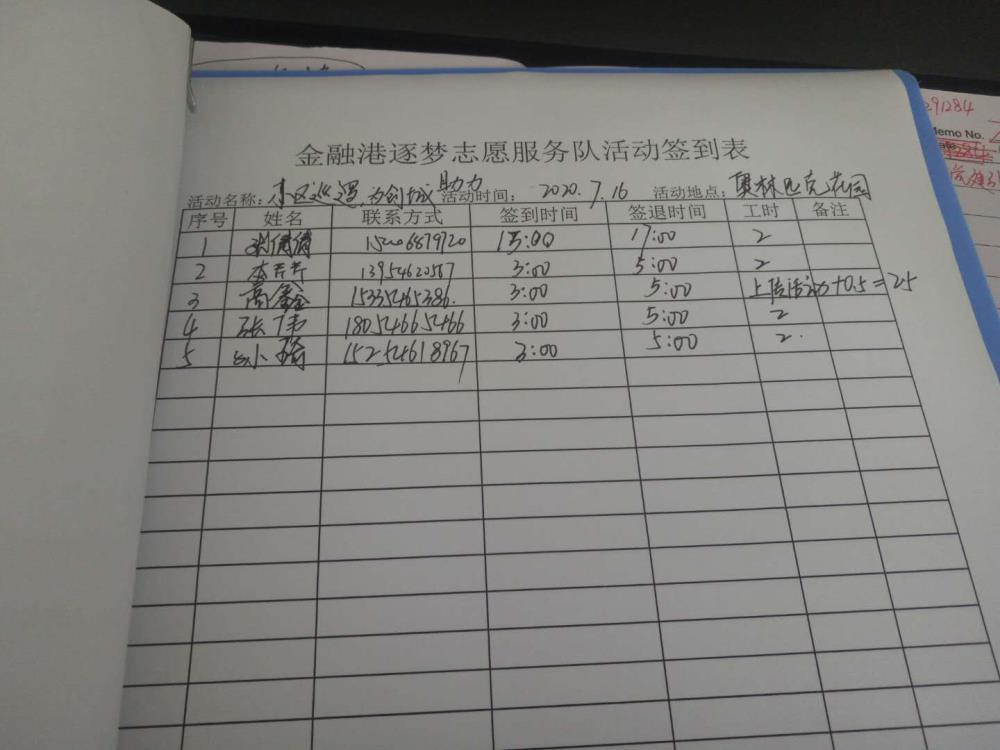 291284
Memo No.
金融港逐梦志愿服务队活动签到表
活动名称: 小区巡逻 为创城助力 活动时间: 2020.7.16 活动地点: 奥林匹克花园
序号 姓名 联系方式 签到时间 签退时间 工时 备注
1 倩倩 15206879720 15:00 17:00 2
2 李芹芹 13954620587 3:00 5:00 2
3 高鑫 15335465386. 3:00 5:00 上传活动+0.5=2.5
4 张伟 18054665466 3:00 5:00 2
5 小 15254618967 3:00 5:00 2.